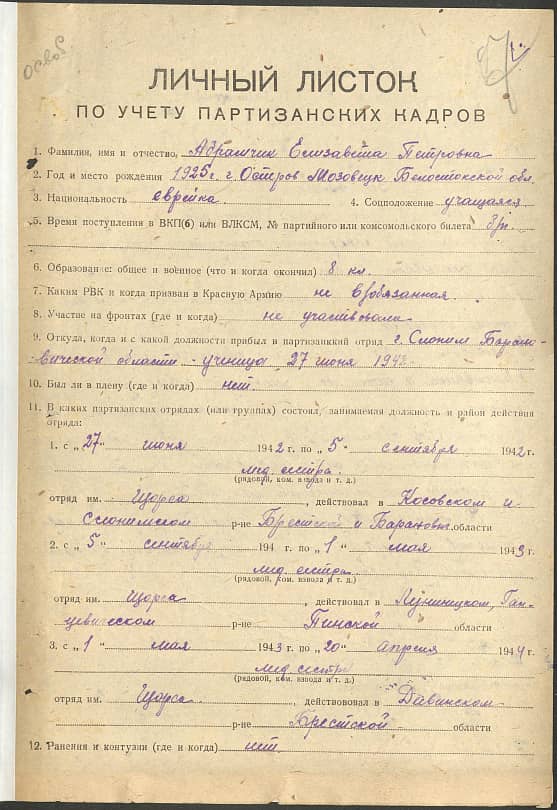 освоб
ЛИЧНЫЙ ЛИСТОК
ПО УЧЕТУ ПАРТИЗАНСКИХ КАДРОВ
1. Фамилия, имя и отчество, Абрамчик Елизавета Петровна
2. Год и место рождения 1925 г. г. Остров Мозовецк Белостокской обл.
3. Национальность еврейка 4. Соцположение учащаяся
5. Время поступления в ВКП(б) или ВЛКСМ, № партийного или комсомольского билета б/п.
6. Образование: общее и военное (что и когда окончил) 8 кл.
7. Каким РВК и когда призван в Красную Армию не в/обязанная
8. Участие на фронтах (где и когда) не участвовала
9. Откуда, когда и с какой должности прибыл в партизанский отряд г. Слоним Барано-
вической области - ученица 27 июня 1942
10. Был ли в плену (где и когда) нет.
11. В каких партизанских отрядах (или группах) состоял, занимаемая должность и район действия
отряда:
1. с „27“ июня 1942 г. по „5“ сентября 1942 г.
мед. сестра.
(рядовой, ком. взвода и т. д.)
отряд им. Щорса, действовал в Косовском и
Слонимском р-не Брестской и Баранович. области
2. с „5“ сентября 194 г. по „1“ мая 1943 г.
мед сестра
(рядовой, ком. взвода и т. д.)
отряд им. Щорса, действовал в Лунинецком, Ган-
цевическом р-не Пинской области
3. с „1“ мая 1943 г. по „20“ апреля 1944 г.
мед. сестра
(рядовой, ком. взвода и т. д.)
отряд им. Щорса, действовал в Давинском
р-не Брестской области
12. Ранения и контузии (где и когда) нет.